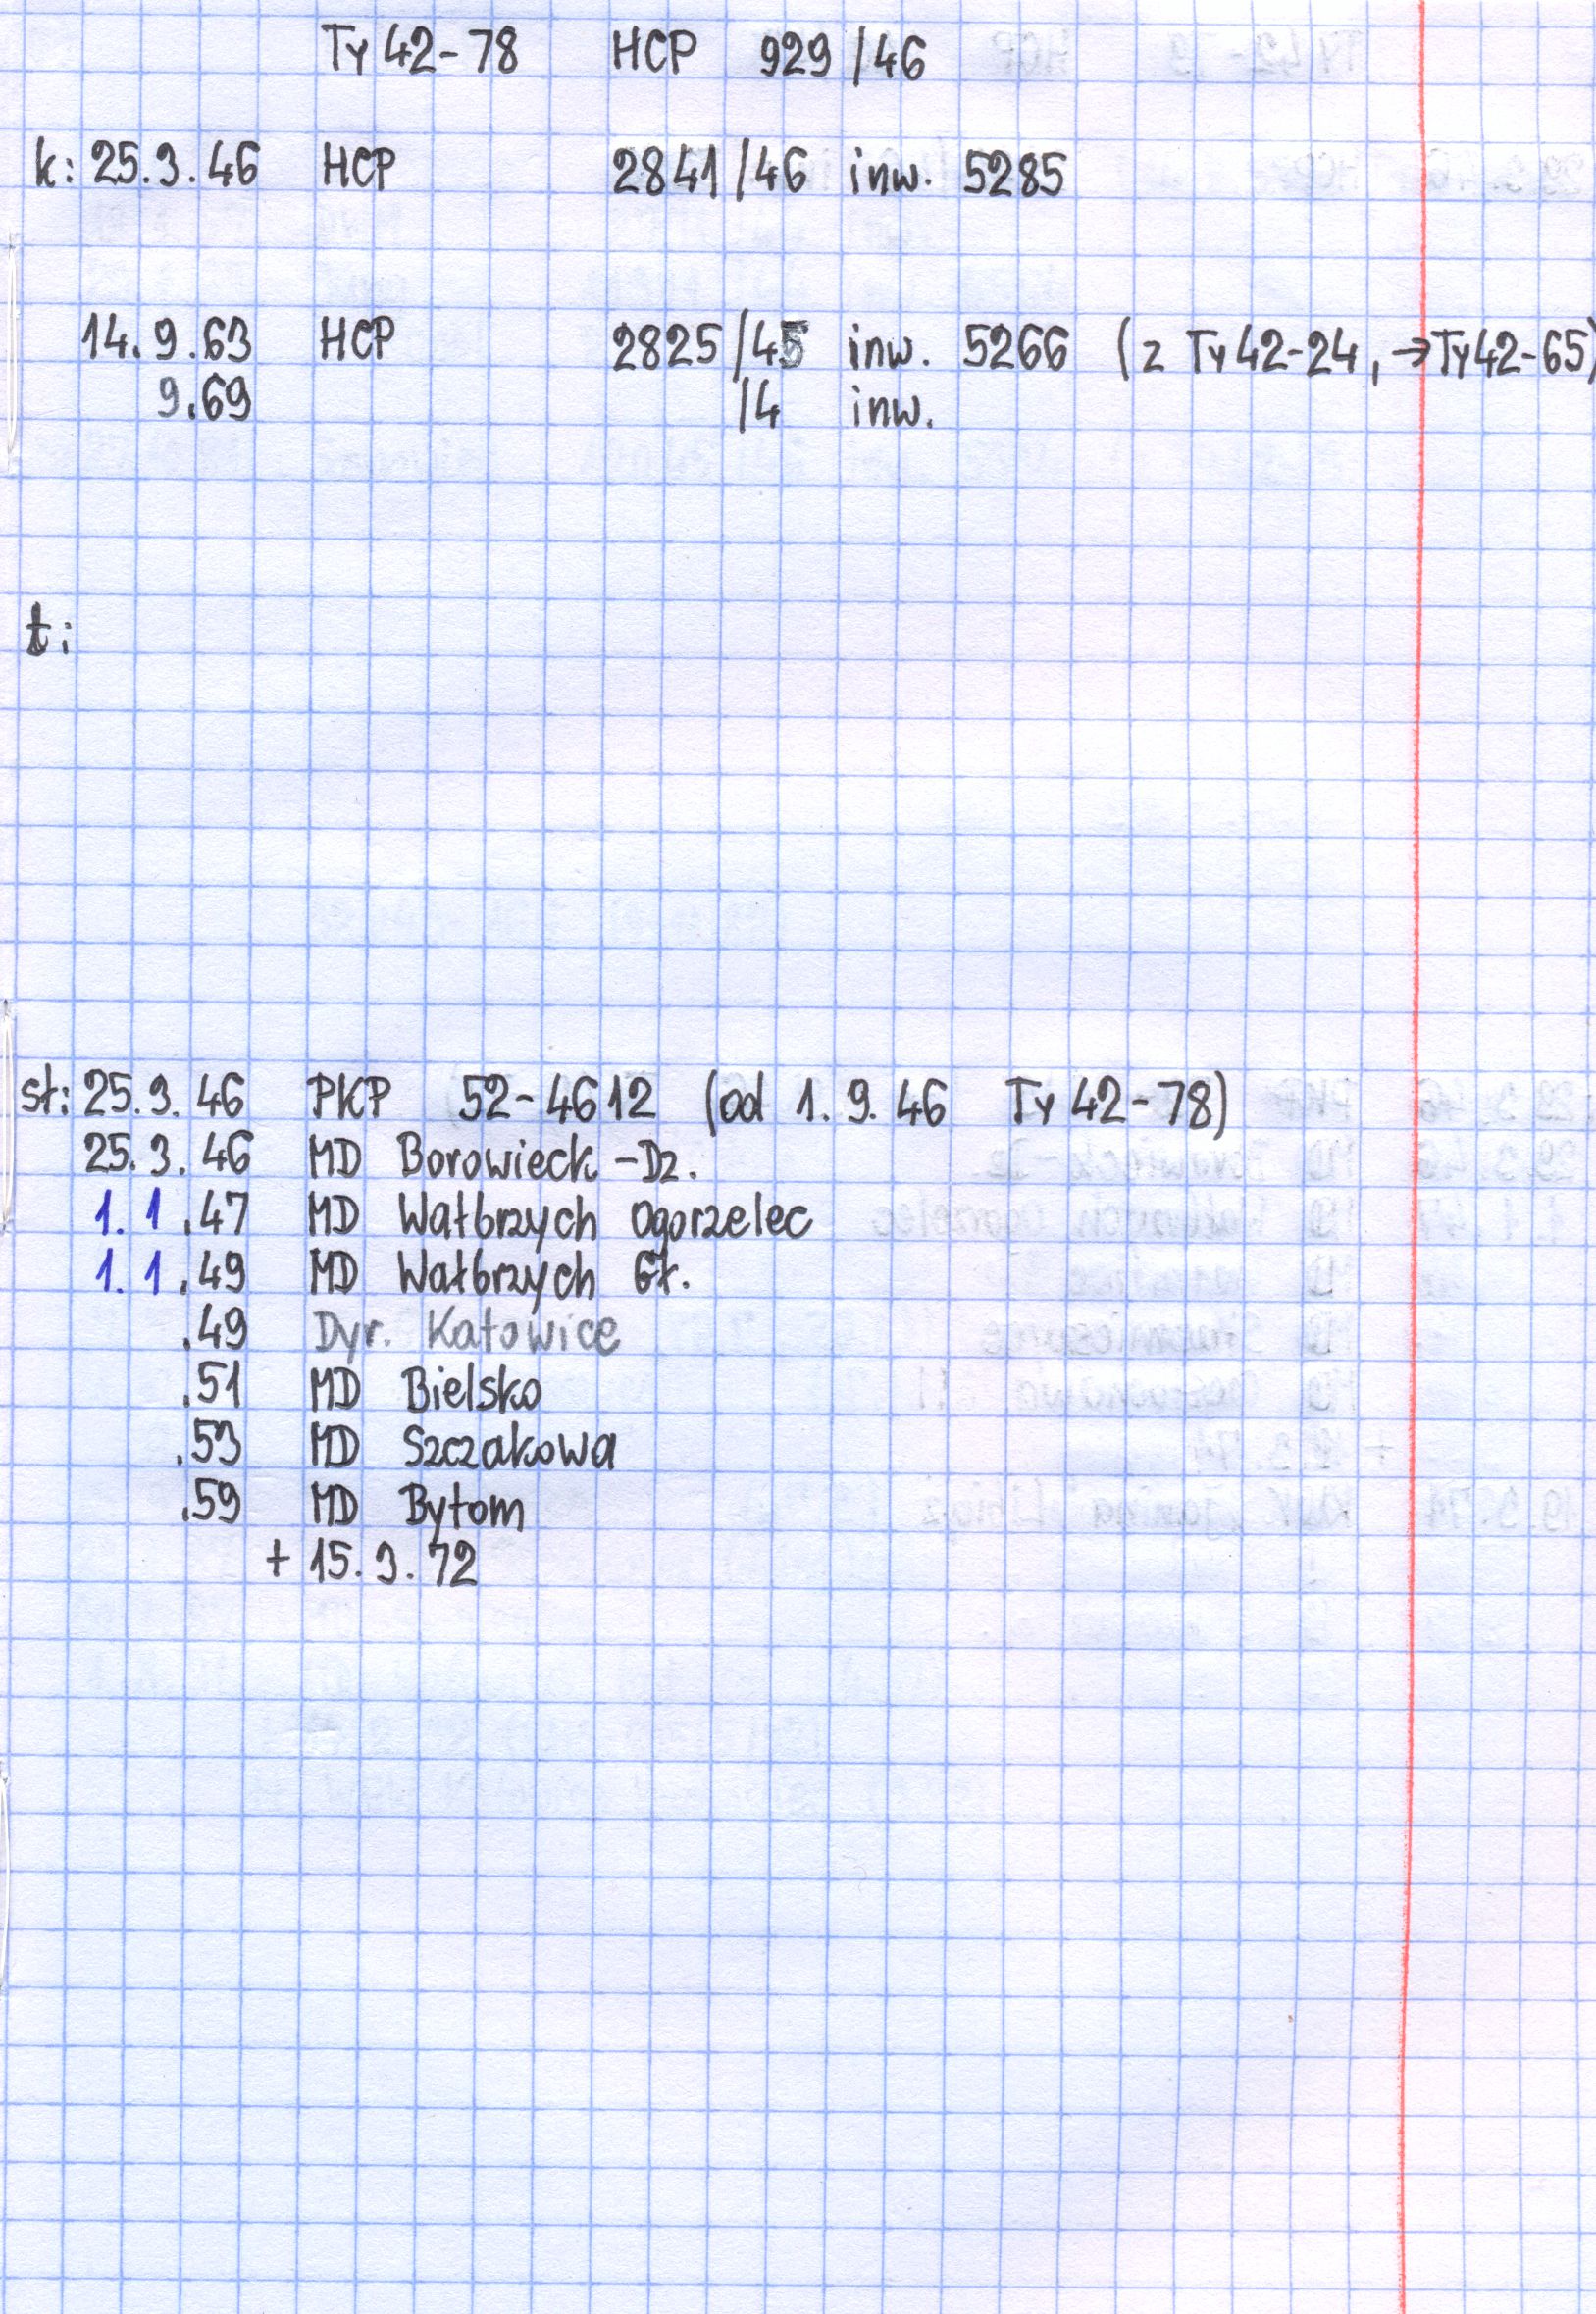 Ty 42-78 HCP 929/46
k: 25.3.46 HCP 2841/46 inw. 5285
14.9.63 HCP 2825/45 inw. 5266 (z Ty 42-24, →Ty42-65)
9.69 /4 inw.
t:
st: 25.3.46 PKP 52-4612 (od 1.9.46 Ty 42-78)
25.3.46 MD Borowieck-Dz.
1.1.47 MD Wałbrzych Ogorzelec
1.1.49 MD Wałbrzych Gł.
.49 Dyr. Katowice
.51 MD Bielsko
.53 MD Szczakowa
.59 MD Bytom
+ 15.3.72